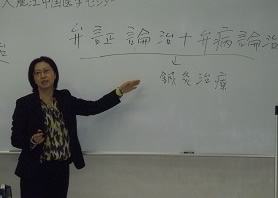 江中国医学センター
弁証論治+弁病論治
↓
鍼灸治療